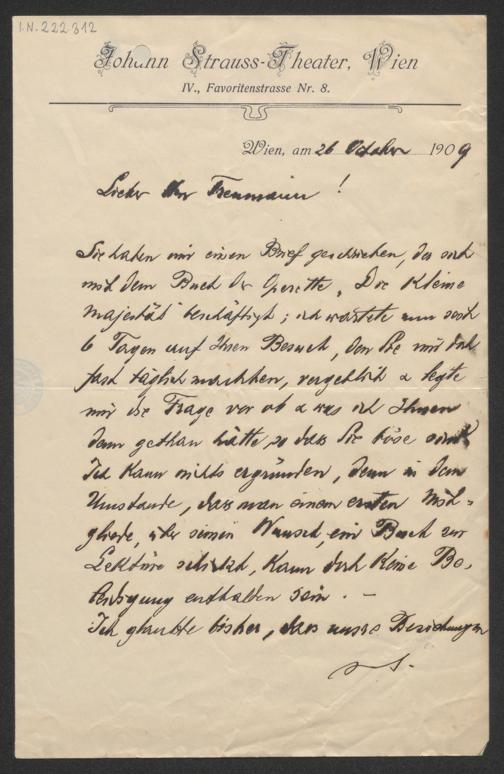 I.N. 222.312
Johann Strauss-Theater, Wien
IV., Favoritenstrasse Nr. 8.
Wien, am 26 October 1909
Lieber Herr Treumann!
Sie haben mir einen Brief geschrieben, der sich
mit dem Buch der Operette „Die kleine
Majestät" beschäftigt; ich wartete nun seit
6 Tagen auf Ihren Besuch, den Sie mir
fast täglich machten, vergeblich & legte
mir die Frage vor ob & was ich Ihnen
denn gethan hätte so dass Sie böse sind.
Ich kann nichts ergründen, denn in dem
Umstande, dass man einem ersten Mit-
gliede, über seinen Wunsch, ein Buch zur
Lektüre schickt, kann doch keine Be-
leidigung enthalten sein. –
Ich glaubte bisher, dass unsre Beziehungen